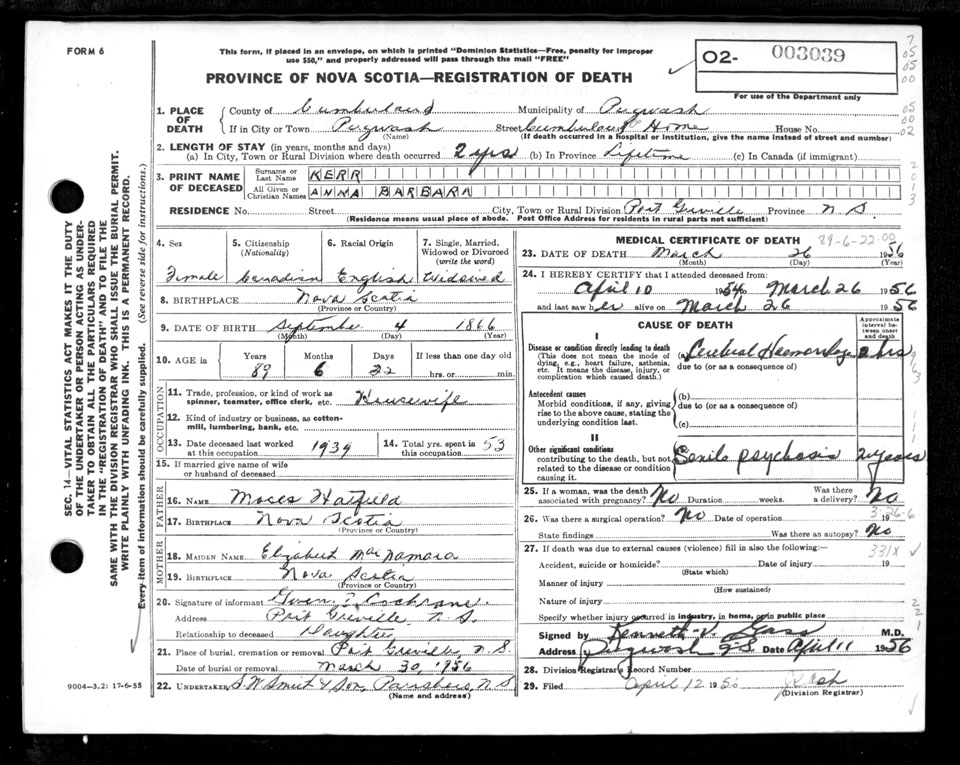 FORM 6
This form, if placed in an envelope, on which is printed "Dominion Statistics—Free, penalty for improper
use $50," and properly addressed will pass through the mail "FREE"
PROVINCE OF NOVA SCOTIA—REGISTRATION OF DEATH
O2- 003039
For use of the Department only
1. PLACE OF DEATH County of Cumberland Municipality of Pugwash
If in City or Town Pugwash Street Cumberland Home House No.
(Name) (If death occurred in a hospital or institution, give the name instead of street and number)
2. LENGTH OF STAY (in years, months and days)
(a) In City, Town or Rural Division where death occurred 2 yrs (b) In Province Lifetime (c) In Canada (if immigrant)
3. PRINT NAME OF DECEASED Surname or Last Name KERR
All Given or Christian Names ANNA BARBARA
RESIDENCE No. Street City, Town or Rural Division Port Greville Province N.S.
(Residence means usual place of abode. Post Office Address for residents in rural parts not sufficient)
4. Sex 5. Citizenship (Nationality) 6. Racial Origin 7. Single, Married, Widowed or Divorced (write the word)
Female Canadian English Widowed
8. BIRTHPLACE Nova Scotia
(Province or Country)
9. DATE OF BIRTH September 4 1866
(Month) (Day) (Year)
10. AGE in Years Months Days If less than one day old
89 6 22 hrs. or min.
OCCUPATION
11. Trade, profession, or kind of work as spinner, teamster, office clerk, etc. Housewife
12. Kind of industry or business, as cotton-mill, lumbering, bank, etc.
13. Date deceased last worked at this occupation 1939 14. Total yrs. spent in this occupation 53
15. If married give name of wife or husband of deceased
FATHER
16. NAME Moses Hatfield
17. BIRTHPLACE Nova Scotia
MOTHER
18. MAIDEN NAME Elizabeth MacNamara
19. BIRTHPLACE Nova Scotia
(Province or Country)
20. Signature of informant Cochrane
Address Port Greville, N.S.
Relationship to deceased Daughter
21. Place of burial, cremation or removal Port Greville, N.S.
Date of burial or removal March 30, 1956
22. UNDERTAKER Smith & Son, N.S.
(Name and address)
MEDICAL CERTIFICATE OF DEATH 89-6-22-00
23. DATE OF DEATH March 26 1956
(Month) (Day) (Year)
24. I HEREBY CERTIFY that I attended deceased from:
April 10 1954 March 26 1956
and last saw her alive on March 26 1956
CAUSE OF DEATH
Approximate interval between onset and death
I
Disease or condition directly leading to death
(This does not mean the mode of dying, e.g., heart failure, asthenia, etc. It means the disease, injury, or complication which caused death.)
(a) Cerebral Haemorrhage 2 hrs
due to (or as a consequence of)
Antecedent causes
Morbid conditions, if any, giving rise to the above cause, stating the underlying condition last.
(b)
due to (or as a consequence of)
(c)
II
Other significant conditions
contributing to the death, but not related to the disease or condition causing it.
Senile psychosis 2 years
25. If a woman, was the death associated with pregnancy? No Duration weeks. Was there a delivery? No
26. Was there a surgical operation? No Date of operation 19
3-26-6
State findings Was there an autopsy? No
27. If death was due to external causes (violence) fill in also the following:— 331X
Accident, suicide or homicide? Date of injury 19
(State which)
Manner of injury
(How sustained)
Nature of injury
Specify whether injury occurred in industry, in home, or in public place
Signed by Kenneth V. Gass M.D.
Address Pugwash N.S. Date April 11 1956
28. Division Registrar's Record Number
29. Filed April 12 1956
(Division Registrar)
SEC. 14—VITAL STATISTICS ACT MAKES IT THE DUTY
OF THE UNDERTAKER OR PERSON ACTING AS UNDER-
TAKER TO OBTAIN ALL THE PARTICULARS REQUIRED
IN THE "REGISTRATION OF DEATH" AND TO FILE THE
SAME WITH THE DIVISION REGISTRAR WHO SHALL ISSUE THE BURIAL PERMIT.
WRITE PLAINLY WITH UNFADING INK. THIS IS A PERMANENT RECORD.
Every item of information should be carefully supplied. (See reverse side for instructions.)
9004—3.2: 17-6-55